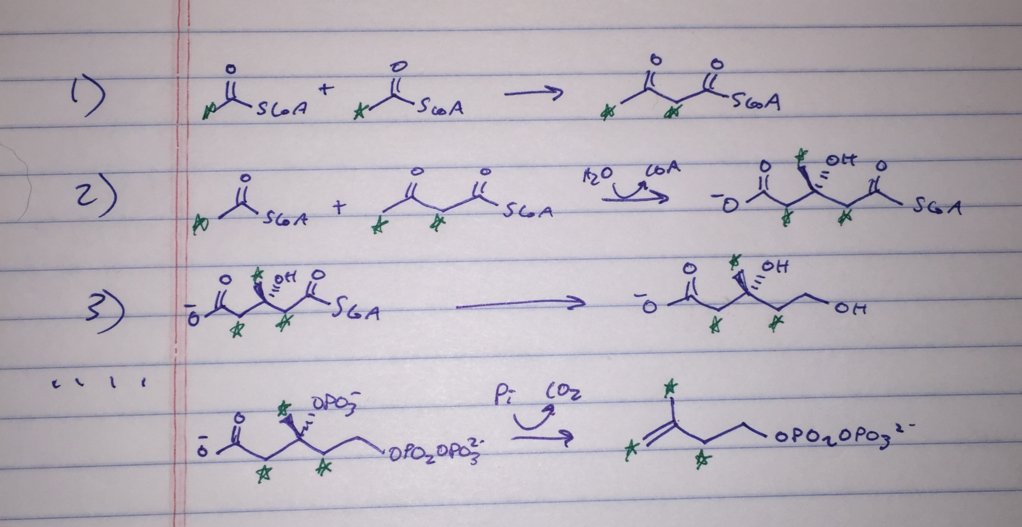 1) O SCoA + O SCoA → O O SCoA
2) O SCoA + O O SCoA H2O CoA → O -O OH O SCoA
3) O -O OH O SCoA → O -O OH OH
.....
O -O OPO3- OPO2OPO3 2- Pi CO2 → OPO2OPO3 2-